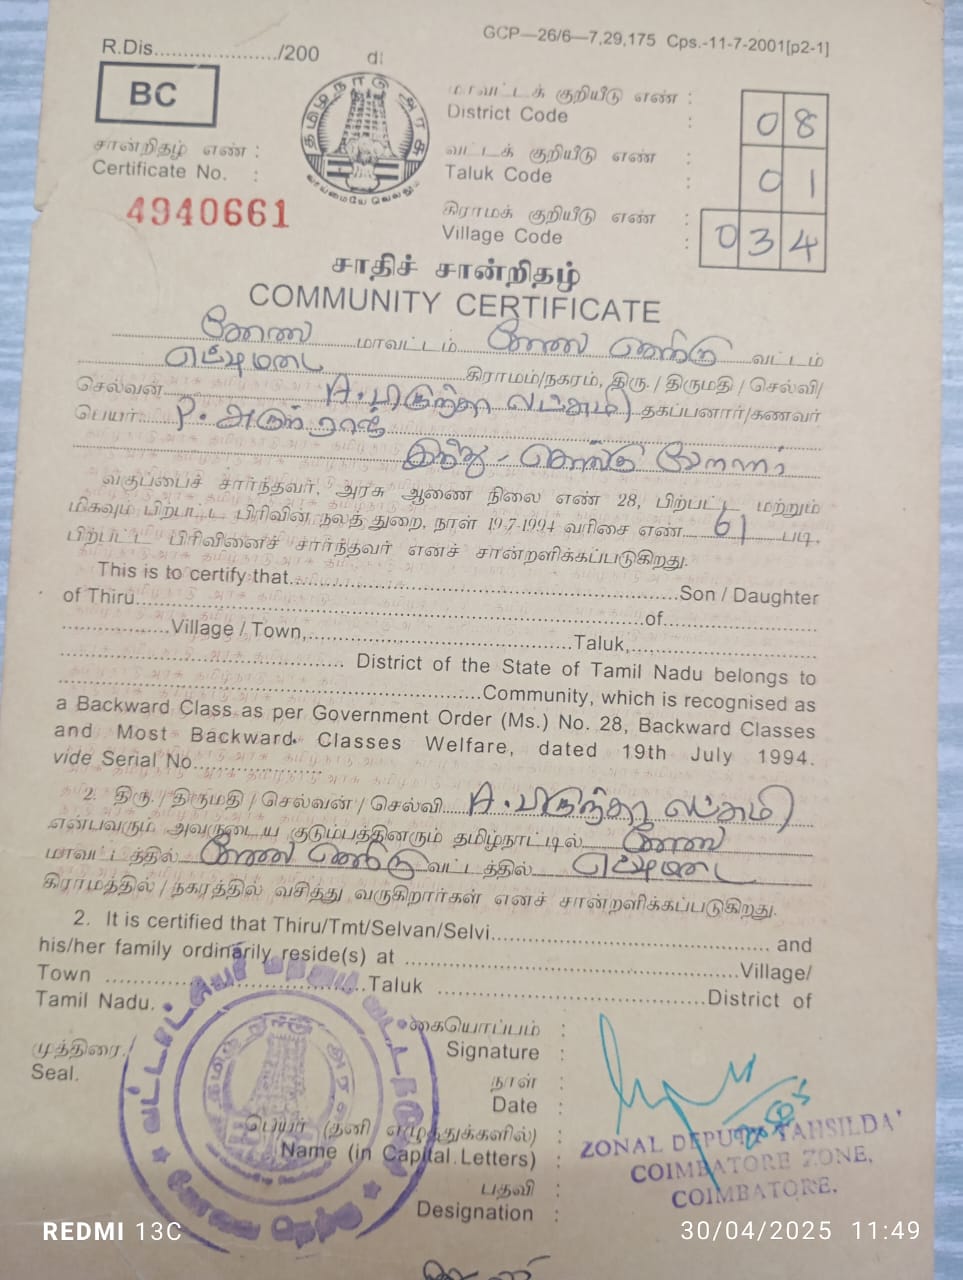 GCP—26/6—7,29,175 Cps.-11-7-2001[p2-1]
R.Dis...................../200
BC
தமிழ்நாடு அரசு
வாய்மையே வெல்லும்
மாவட்டக் குறியீடு எண் :
District Code :
08
வட்டக் குறியீடு எண் :
Taluk Code :
01
கிராமக் குறியீடு எண் :
Village Code :
034
சான்றிதழ் எண் :
Certificate No. :
4940661
சாதிச் சான்றிதழ்
COMMUNITY CERTIFICATE
கோவை மாவட்டம் கோவை தெற்கு வட்டம்
எட்டிமடை கிராமம்/நகரம், திரு./ திருமதி / செல்வி/
செல்வன் A. பிருந்தா லட்சுமி தகப்பனார்/கணவர்
பெயர் P. அருள் ராஜ்
இந்து - கொங்கு வேளாளர்
வகுப்பைச் சார்ந்தவர், அரசு ஆணை நிலை எண் 28, பிற்பட்ட மற்றும்
மிகவும் பிற்பட்ட பிரிவின் நலத் துறை, நாள் 19-7-1994 வரிசை எண் 61 படி,
பிற்பட்ட பிரிவினைச் சார்ந்தவர் எனச் சான்றளிக்கப்படுகிறது.
This is to certify that..................................................Son / Daughter
of Thiru..................................................of....................
..................Village / Town,...................................Taluk,.........................
............................................. District of the State of Tamil Nadu belongs to
..................................................Community, which is recognised as
a Backward Class as per Government Order (Ms.) No. 28, Backward Classes
and Most Backward Classes Welfare, dated 19th July 1994.
vide Serial No.....................
2. திரு. / திருமதி / செல்வன் / செல்வி A. பிருந்தா லட்சுமி
என்பவரும் அவருடைய குடும்பத்தினரும் தமிழ்நாட்டில் கோவை
மாவட்டத்தில் கோவை தெற்கு வட்டத்தில் எட்டிமடை
கிராமத்தில் / நகரத்தில் வசித்து வருகிறார்கள் எனச் சான்றளிக்கப்படுகிறது.
2. It is certified that Thiru/Tmt/Selvan/Selvi..................................... and
his/her family ordinarily reside(s) at ..................................................Village/
Town ...................................Taluk ...................................District of
Tamil Nadu.
கையொப்பம் :
முத்திரை./ Signature :
Seal.
நாள் :
Date :
பெயர் (தனி எழுத்துக்களில்) :
Name (in Capital Letters) :
பதவி :
Designation :
ZONAL DEPUTY TAHSILDA
COIMBATORE ZONE,
COIMBATORE.
REDMI 13C
30/04/2025 11:49